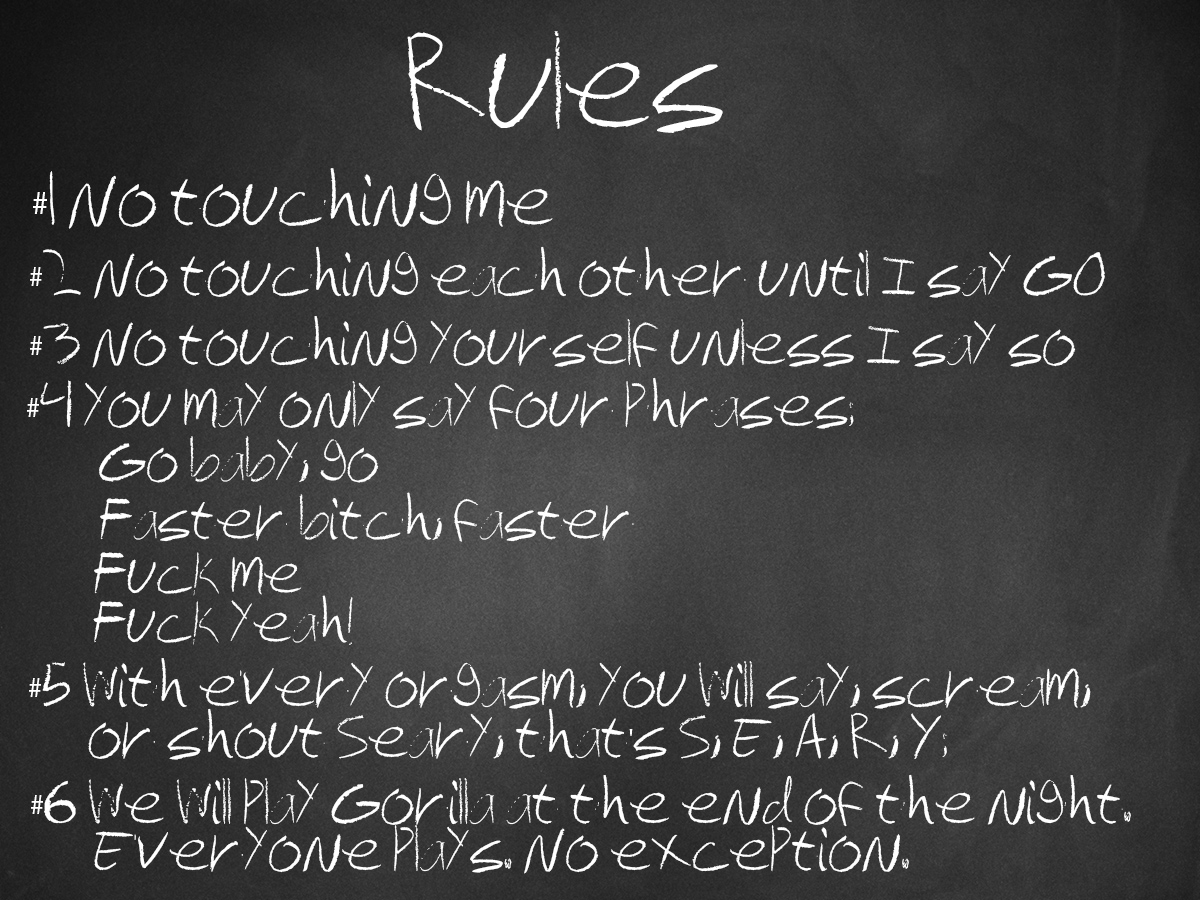 Rules
#1 No touching me
#2 No touching each other until I say GO
#3 No touching yourself unless I say so
#4 You may only say four phrases;
Go baby, go
Faster bitch, faster
Fuck me
Fuck yeah!
#5 With every orgasm, you will say, scream,
or shout Seary, that's S, E, A, R, Y;
#6 We Will Play Gorilla at the end of the night.
Everyone Plays. No exception.